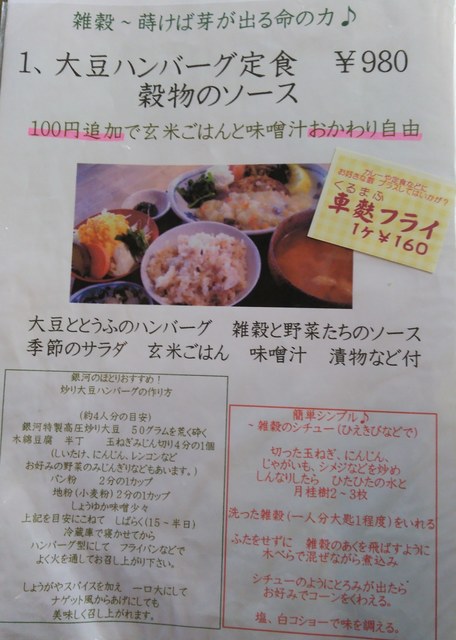 雑穀~蒔けば芽が出る命の力♪
1、大豆ハンバーグ定食 ￥980
穀物のソース
100円追加で玄米ごはんと味噌汁おかわり自由
カレーや定食などに
お好きな数 プラスしてはいかが？
くるまふ
車麩フライ
1ケ￥160
大豆ととうふのハンバーグ 雑穀と野菜たちのソース
季節のサラダ 玄米ごはん 味噌汁 漬物など付
銀河のほとりおすすめ！
炒り大豆ハンバーグの作り方
（約4人分の目安）
銀河特製高圧炒り大豆 50グラムを荒く砕く
木綿豆腐 半丁 玉ねぎみじん切り4分の1個
（しいたけ、にんじん、レンコンなど
お好みの野菜のみじんぎりなどもあいます。）
パン粉 2分の1カップ
地粉（小麦粉）2分の1カップ
しょうゆか味噌少々
上記を目安にこねて しばらく（15～半日）
冷蔵庫で寝かせてから
ハンバーグ型にして フライパンなどで
よく火を通してお召し上がり下さい。
しょうがやスパイスを加え 一口大にして
ナゲット風からあげにしても
美味しく召し上がれます。
簡単シンプル♪
~雑穀のシチュー（ひえきびなどで）
切った玉ねぎ、にんじん、
じゃがいも、シメジなどを炒め
しんなりしたら ひたひたの水と
月桂樹2～3枚
洗った雑穀（一人分大匙1程度）をいれる
ふたをせずに 雑穀のあくを飛ばすように
木べらで混ぜながら煮込み
シチューのようにとろみが出たら
お好みでコーンをくわえる。
塩、白コショーで味を調える。